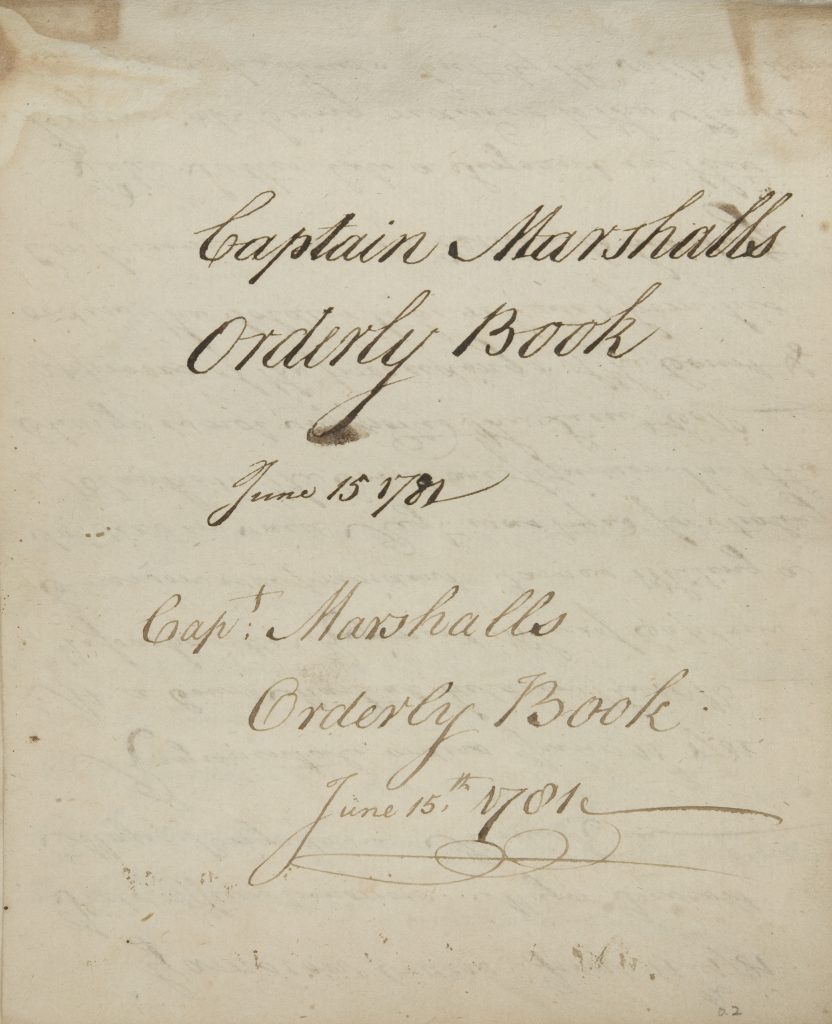 Captain Marshalls
Orderly Book
June 15 1781
Capt. Marshalls
Orderly Book.
June 15th 1781